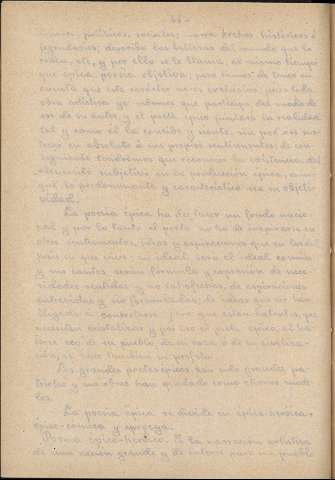 55
políticas, sociales; narra hechos históricos ó
legendarios; describe las bellezas del mundo que le
rodea, etc, y por ello se le llama, al mismo tiempo
que épica, poesía objetiva, pero hemos de tener en
cuenta que este carácter no es exclusivo, pues toda
obra artística ya sabemos que participa del modo de
ser de su autor y el poeta épico pinta la realidad
tal y como él la concibe y siente, sin por eso
en absoluto á sus propios sentimientos; de con-
siguiente tendremos que reconocer la existencia del
elemento subjetivo en la producción épica, aun-
que lo predominante y característico sea su objeti-
vidad.
La poesía épica ha de tener un fondo nacio-
nal y por lo tanto el poeta no ha de inspirarse en
otros sentimientos, ideas y aspiraciones que en las del
país en que vive: su ideal, será el ideal común
y sus cantos serán fórmula y expresión de nece-
sidades sentidas y no satisfechas, de aspiraciones
y no formuladas, de ideas que no han
llegado á concretarse pero que están latentes, que
necesitan exteriorizarse y por eso el poeta épico, al ha-
cerse eco de su pueblo, de su raza ó de su civiliza-
ción, es también su profeta.
Los grandes poetas épicos han sido grandes pa-
triotas y sus obras han quedado como obras mode-
los.
La poesía épica se divide en épico-heróica,
épico-cómica y epopeya.
Poema épico-heróico. Es la narración artística
de una acción grande y de interés para un pueblo